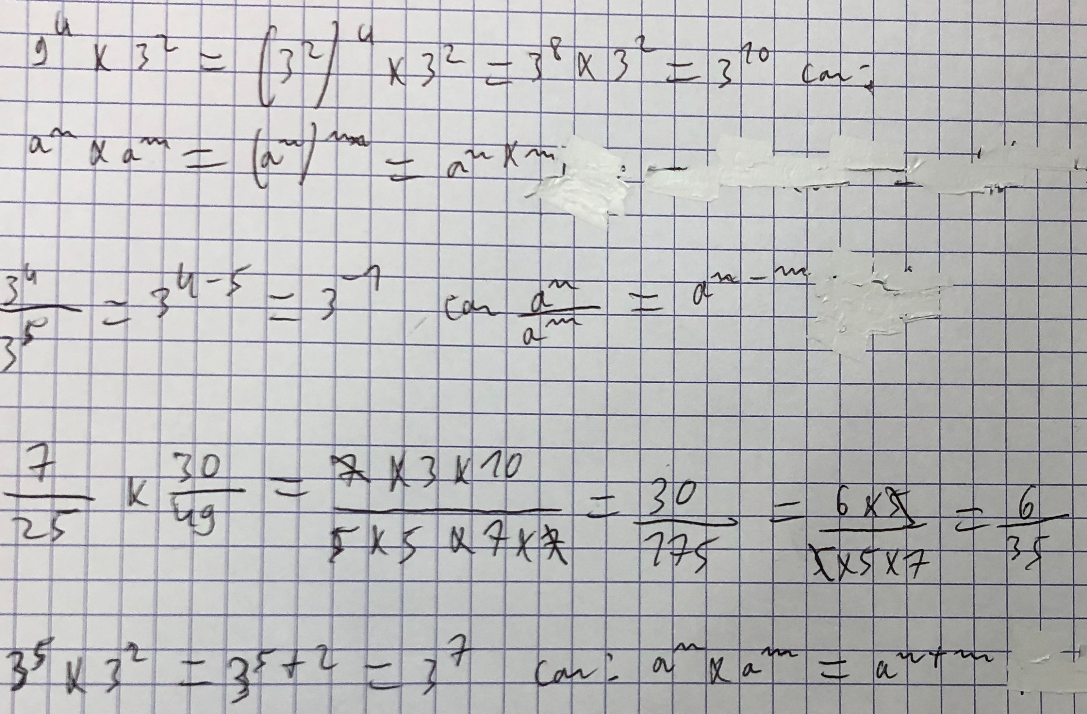 9⁴ × 3² = (3²)⁴ × 3² = 3⁸ × 3² = 3¹⁰ car :
aⁿ × aᵐ = (aⁿ)ᵐ = aⁿ ˣ ᵐ
3⁴/3⁵ = 3⁴⁻⁵ = 3⁻¹ car aⁿ/aᵐ = aⁿ⁻ᵐ
7/25 × 30/49 = (7 × 3 × 10)/(5 × 5 × 7 × 7) = 30/175 = (6 × 5)/(5 × 5 × 7) = 6/35
3⁵ × 3² = 3⁵⁺² = 3⁷ car : aⁿ × aᵐ = aⁿ⁺ᵐ